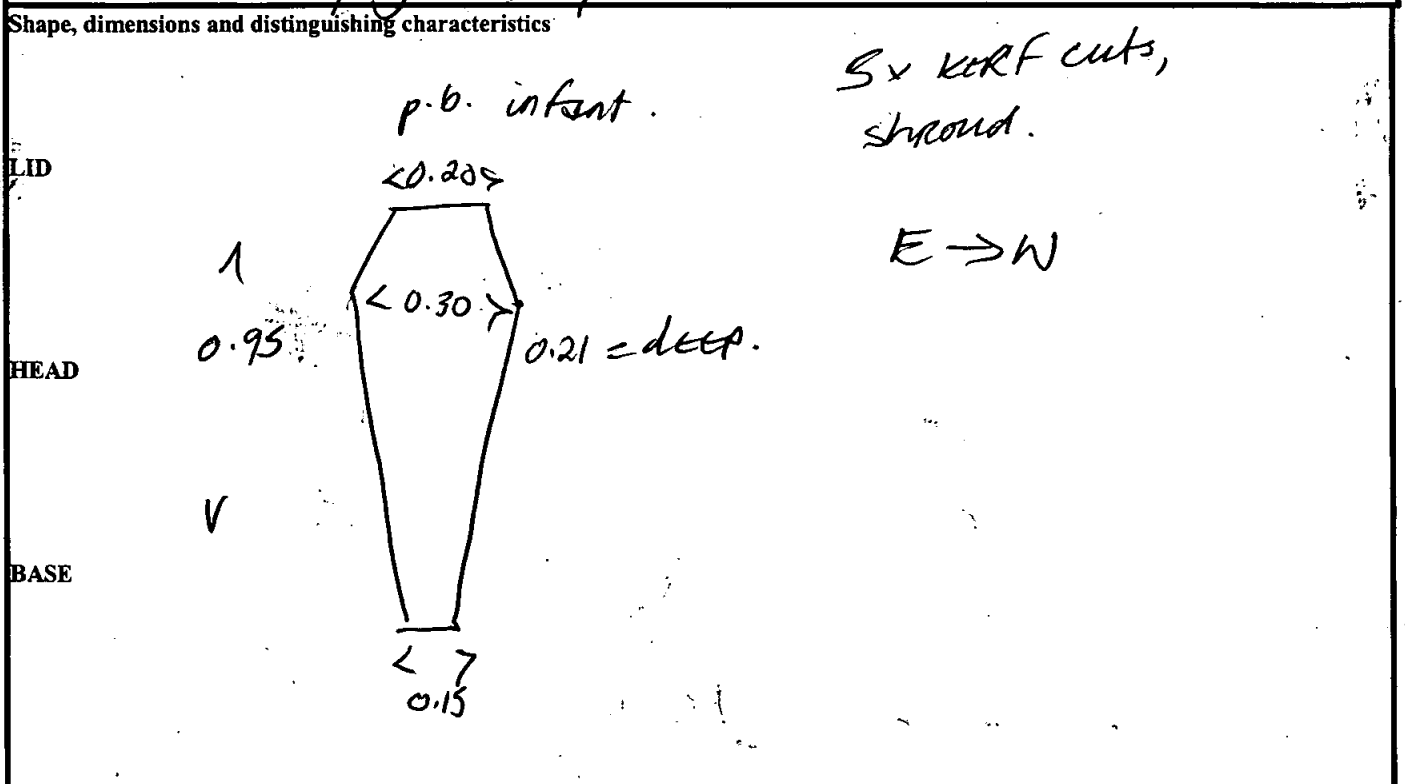 Shape, dimensions and distinguishing characteristics
5x KERF cuts,
shroud.
p.b. infant.
LID
<0.20>
E → W
<0.30>
0.95
0.21 = deep.
HEAD
BASE
< >
0.15